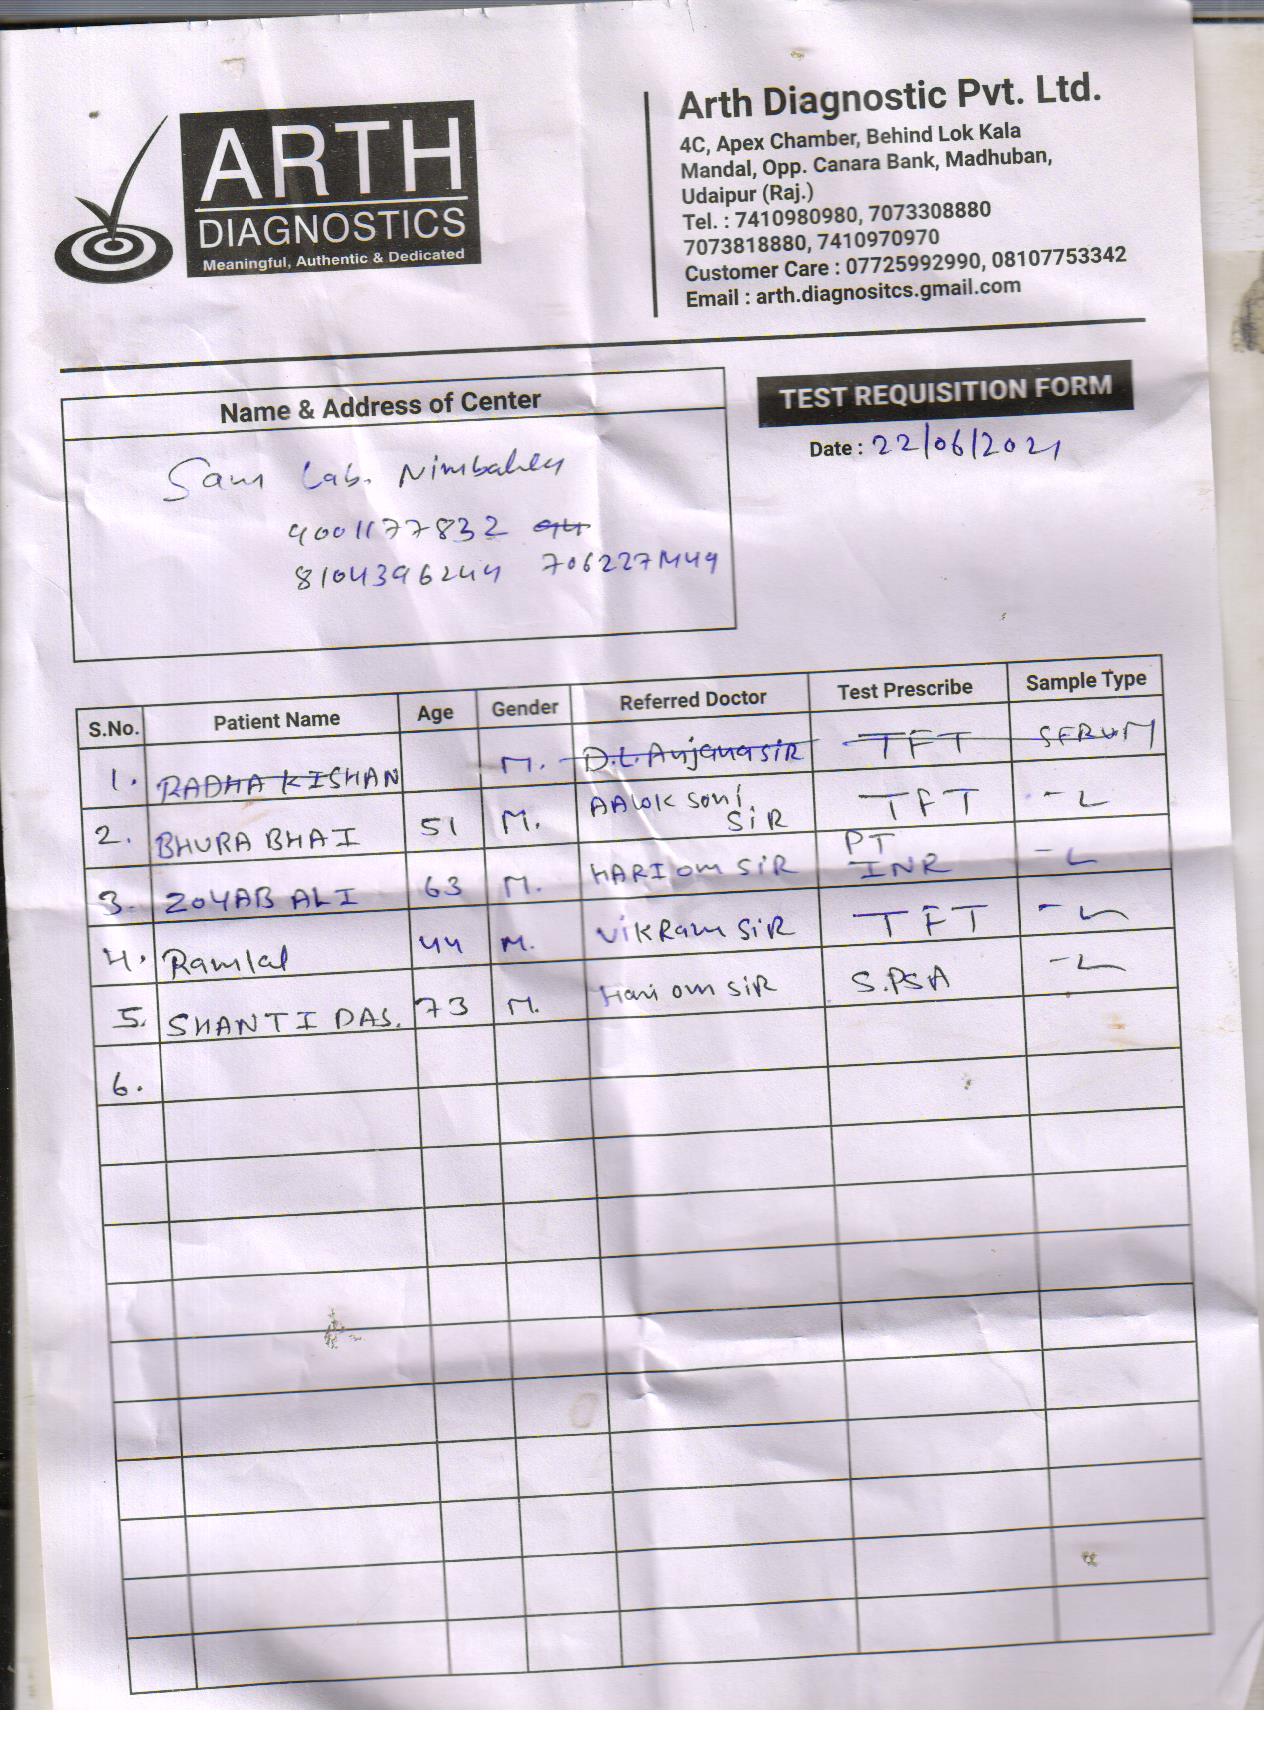 ARTH
DIAGNOSTICS
Meaningful, Authentic & Dedicated
Arth Diagnostic Pvt. Ltd.
4C, Apex Chamber, Behind Lok Kala
Mandal, Opp. Canara Bank, Madhuban,
Udaipur (Raj.)
Tel. : 7410980980, 7073308880
7073818880, 7410970970
Customer Care : 07725992990, 08107753342
Email : arth.diagnositcs.gmail.com
Name & Address of Center
TEST REQUISITION FORM
Date : 22/06/2021
Lab.
8104396244
S.No. Patient Name Age Gender Referred Doctor Test Prescribe Sample Type
1. RADHA KISHAN M. D.L. Anjana SIR TFT SERUM
2. BHURA BHAI 51 M. AALOK SONI SIR TFT
3. ZOYAB ALI 63 M. HARI OM SIR PT INR
4. Ramlal 44 M. VIKRAM SIR TFT
5. SHANTI DAS. 73 M. Hari om SIR S.PSA
6.